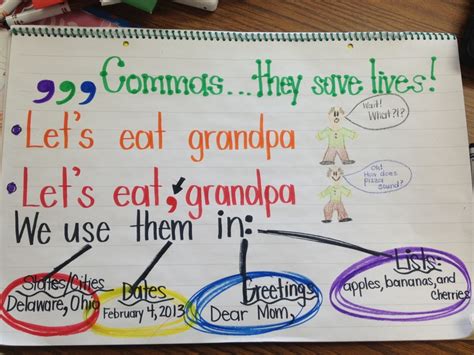 ,,, Commas...they save lives!
Wait!
What?!?
Let's eat grandpa
Let's eat, grandpa
How does
pizza
sound?
We use them in:
States/Cities
Delaware, Ohio
Dates
February 4, 2013
Greetings
Dear Mom,
Lists:
apples, bananas, and
cherries